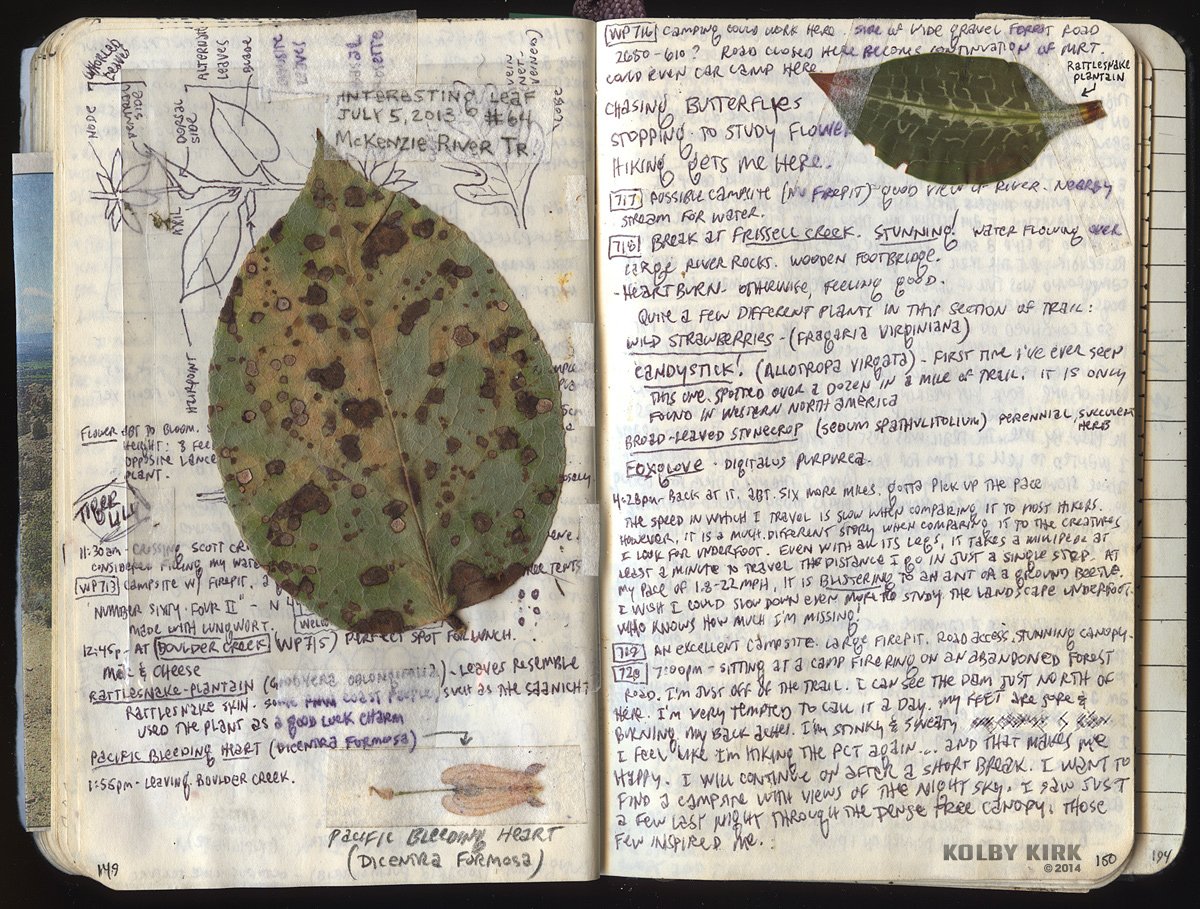 UNFURLED LEAVES
NODE
VENTRAL SIDE
DORSAL SIDE
ALTERNATE LEAVES
BLADE
OPPOSITE LEAVES
BASAL ROSETTE
AXIL
HAIRPOINT
INTERESTING LEAF
JULY 5, 2013 #64
McKENZIE RIVER TR.
FLOWER ABT TO BLOOM.
HEIGHT: 3 FEET
OPPOSITE LANCE
PLANT.
TIGER LILY
11:30am - CROSSING SCOTT CR
CONSIDERED FILLING MY WATE
WP713 CAMPSITE W/ FIREPIT, A
TREE TENTS
NUMBER SIXTY-FOUR II" - N 4
MADE WITH LUNGWORT.
12:45p - AT BOULDER CREEK (WP715) PERFECT SPOT FOR LUNCH.
MAC & CHEESE
RATTLESNAKE-PLANTAIN (GOODYERA OBLONGIFOLIA) - LEAVES RESEMBLE
RATTLESNAKE SKIN. SOME COAST PEOPLE, SUCH AS THE SAANICH
USED THE PLANT AS A GOOD LUCK CHARM
PACIFIC BLEEDING HEART (DICENTRA FORMOSA)
1:55pm - LEAVING BOULDER CREEK.
PACIFIC BLEEDING HEART
(DICENTRA FORMOSA)
149
WP716 CAMPING COULD WORK HERE. SIDE OF WIDE GRAVEL FOREST ROAD
2650-610? ROAD CLOSED HERE BECOME CONTINUATION OF MRT.
COULD EVEN CAR CAMP HERE
RATTLESNAKE
PLANTAIN
CHASING BUTTERFLIES
STOPPING TO STUDY FLOWE
HIKING GETS ME HERE.
717 POSSIBLE CAMPSITE (NO FIREPIT) - GOOD VIEW OF RIVER. NEARBY
STREAM FOR WATER.
718 BREAK AT FRISSELL CREEK. STUNNING WATER FLOWING OVER
LARGE RIVER ROCKS. WOODEN FOOTBRIDGE.
- HEARTBURN. OTHERWISE, FEELING GOOD.
QUITE A FEW DIFFERENT PLANTS IN THIS SECTION OF TRAIL:
WILD STRAWBERRIES - (FRAGARIA VIRGINIANA)
CANDYSTICK! (ALLOTROPA VIRGATA) - FIRST TIME I'VE EVER SEEN
THIS ONE. SPOTTED OVER A DOZEN IN A MILE OF TRAIL. IT IS ONLY
FOUND IN WESTERN NORTH AMERICA
BROAD-LEAVED STONECROP (SEDUM SPATHULITOLIUM) PERENNIAL, SUCCULENT
HERB
FOXGLOVE - DIGITALUS PURPUREA
4:28pm - BACK AT IT. ABT. SIX MORE MILES. GOTTA PICK UP THE PACE
THE SPEED IN WHICH I TRAVEL IS SLOW WHEN COMPARING IT TO MOST HIKERS.
HOWEVER, IT IS A MUCH DIFFERENT STORY WHEN COMPARING IT TO THE CREATURES
I LOOK FOR UNDERFOOT. EVEN WITH ALL ITS LEGS, IT TAKES A MILLIPEDE AT
LEAST A MINUTE TO TRAVEL THE DISTANCE I GO IN JUST A SINGLE STEP. AT
MY PACE OF 1.8-2.2 MPH, IT IS BLISTERING TO AN ANT OR A GROUND BEETLE.
I WISH I COULD SLOW DOWN EVEN MORE TO STUDY THE LANDSCAPE UNDERFOOT.
WHO KNOWS HOW MUCH I'M MISSING.
719 AN EXCELLENT CAMPSITE. LARGE FIREPIT. ROAD ACCESS. STUNNING CANOPY.
720 7:00pm - SITTING AT A CAMP FIRE RING ON AN ABANDONED FOREST
ROAD. I'M JUST OFF OF THE TRAIL. I CAN SEE THE DAM JUST NORTH OF
HERE. I'M VERY TEMPTED TO CALL IT A DAY. MY FEET ARE SORE &
BURNING. MY BACK ACHES. I'M STINKY & SWEATY
I FEEL LIKE I'M HIKING THE PCT AGAIN... AND THAT MAKES ME
HAPPY. I WILL CONTINUE ON AFTER A SHORT BREAK. I WANT TO
FIND A CAMPSITE WITH VIEWS OF THE NIGHT SKY. I SAW JUST
A FEW LAST NIGHT THROUGH THE DENSE TREE CANOPY. THOSE
FEW INSPIRED ME.
KOLBY KIRK
©2014
150
194